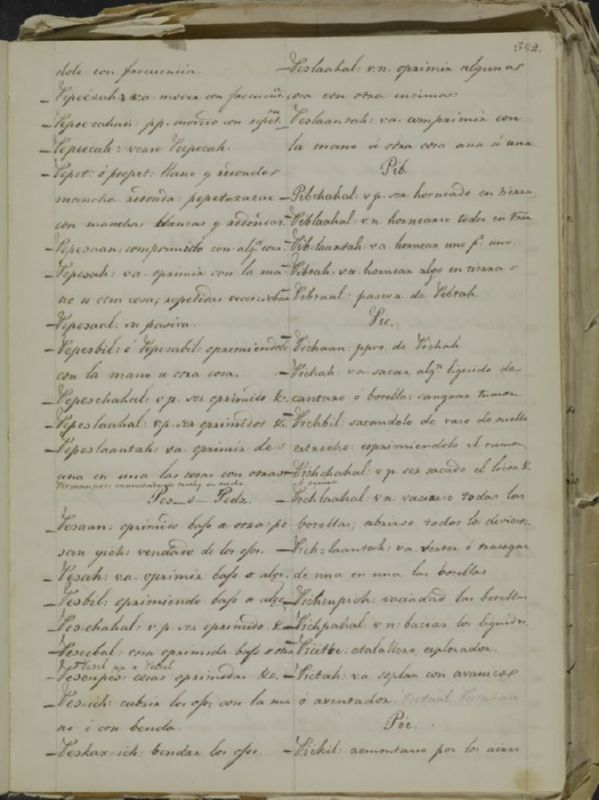 382.
dolo con frecuencia.
— Pepeczah: v.a. mover con frecuenc.
— Pepeczahan: pp. movido con
— Pepeecah: vease Pepecah.
— Pepet: ó pecpet: llano y redondo
mancha redonda: pepetxacac
con manchas blancas y redondas.
— Pepesaan: comprimido con algª cosa
— Pepesah: v.a. oprimir con la ma-
no u otra cosa, repetidas veces
— Pepesaal: su pasiva.
— Pepesbil: ó Pepesabil: oprimiendolo
con la mano u otra cosa.
— Pepeschahal: v.p. ser oprimido &.
— Pepeslaahal: v.p. ser oprimidos &.
— Pepeslaantah: v.a. oprimir de
una en una las cosas con otras
Pes_ó_Pedz.
— Pesaan: oprimido bajo a otra: pe-
saan yich: vendado de los ojos.
— Pesah: v.a. oprimir bajo a algo.
— Pesbil: oprimiendo bajo a algo
— Peschahal: v.p. ser oprimido. &
— Pesecbal: cosa oprimida bajo a otra
— Pesenpes: cosas oprimidas &c.
— Pes-ich: cubrir los ojos con la ma-
no ó con benda.
— Peskax-ich: bendar los ojos.
— Peslaahal: v.n. oprimir algunas
cosa con otra encima.
— Peslaantah: v.a. comprimir con
la mano ú otra cosa una á una
Pib.
— Pibchahal: v.p. ser horneado en tierra.
— Piblaahal: v.n. hornearse todos en trª.
— Pib-laantah: v.a. hornear uno pr. uno.
— Pibtah: v.a. hornear algo en tierra
— Pibtaal: pasiva de Pibtah.
Pic.
— Pichaan: ppvo. de Pichah
— Pichah: v.a. sacar algn. liquido de
cantaro ó botella: sangrar tumor.
— Pichbil: sacandolo de vaso de cuello
estrecho: esprimiendolo el tumor.
— Pichchahal: v.p. ser sacado el licor &.
— Pichlaahal: v.n: vaciarse todas las
botellas; abrirse todos los diviesos.
— Pich-laantah: v.a. verter ó trasegar
de una en una las botellas
— Pichenpich: vaciadas las botellas
— Pichpahal: v.n: baciar los liquidos.
— Picitbe: atalallero, esplorador.
— Pictah: v.a soplar con avanico
ó aventador. Pictaal Pictahan
Pic.
— Pickil: remontarse por los aires